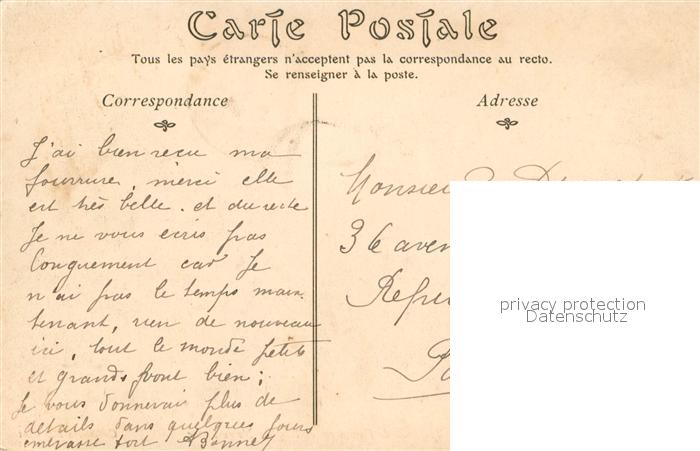 Carte Postale
Tous les pays étrangers n'acceptent pas la correspondance au recto.
Se renseigner à la poste.
Correspondance
Adresse
J'ai bien recu ma
fourrure, merci elle
est très belle. et du reste
Je ne vous écris pas
longuement car Je
n'ai pas le temps main
tenant, rien de nouveau
ici, tout le monde petits
et grands font bien;
Je vous donnerai plus de
details dans quelques jours
embrasse fort
Monsieur
36 aven
Repu
privacy protection
Datenschutz